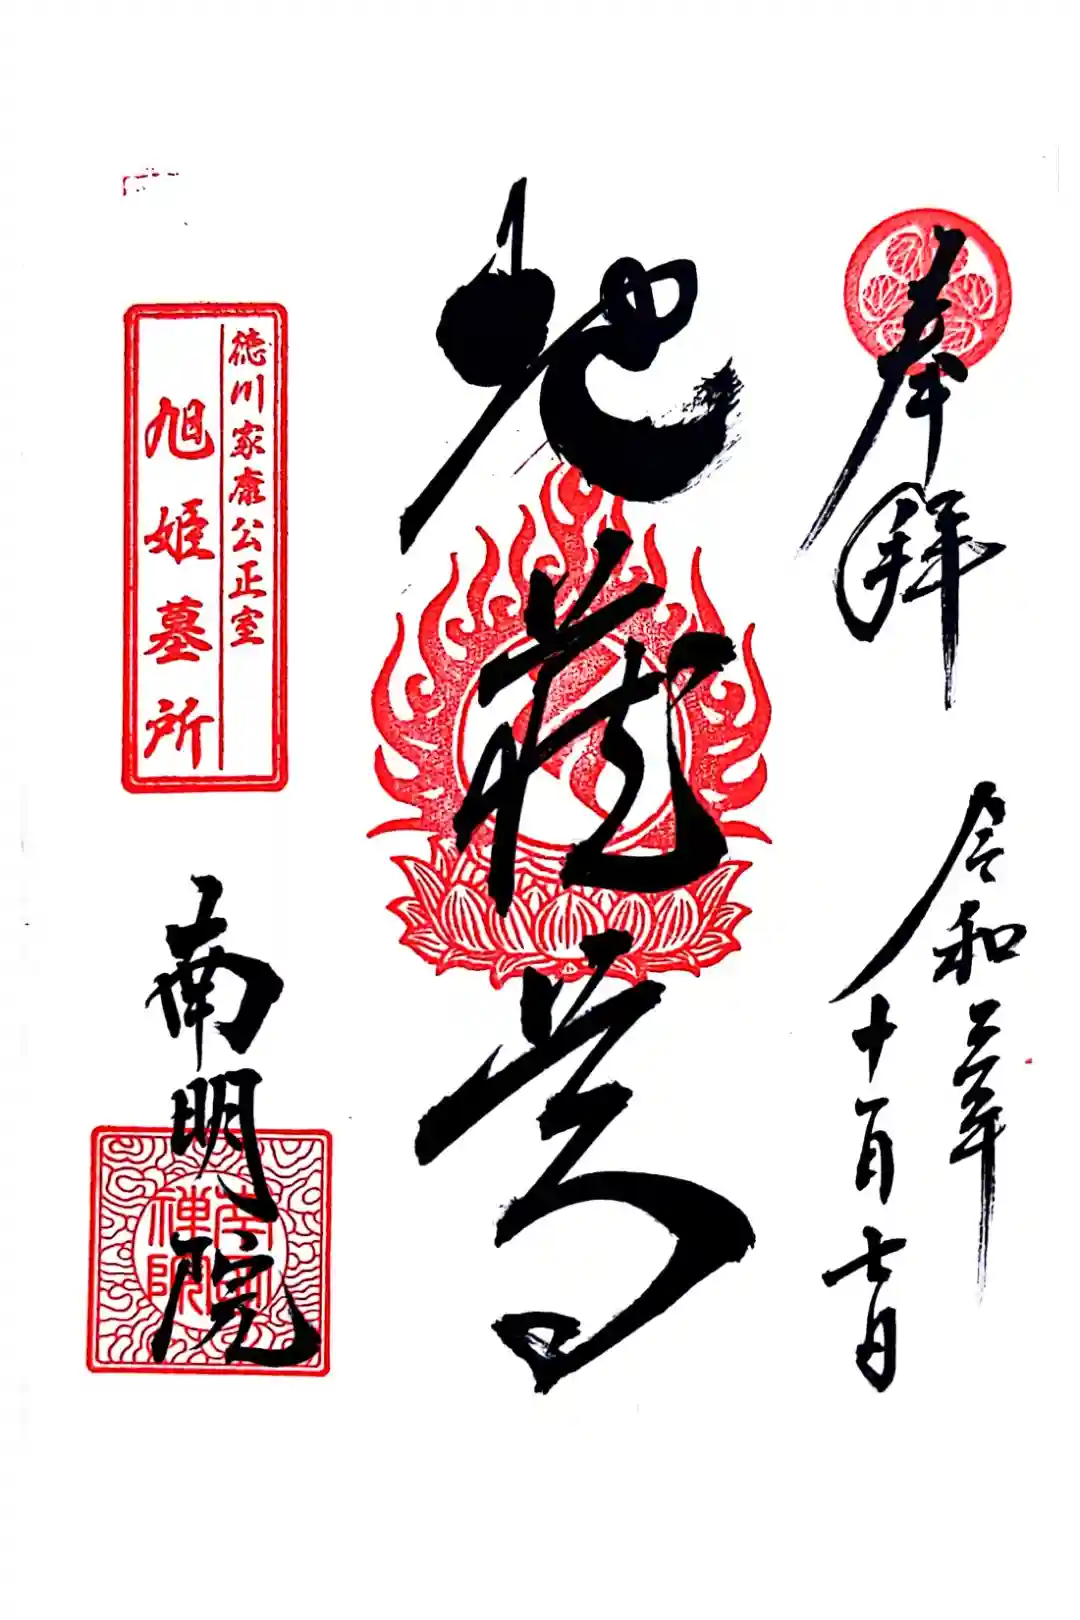 奉拝
令和三年
十一月七日
地蔵尊
徳川家康公正室
旭姫墓所
南明院
南明
禅院